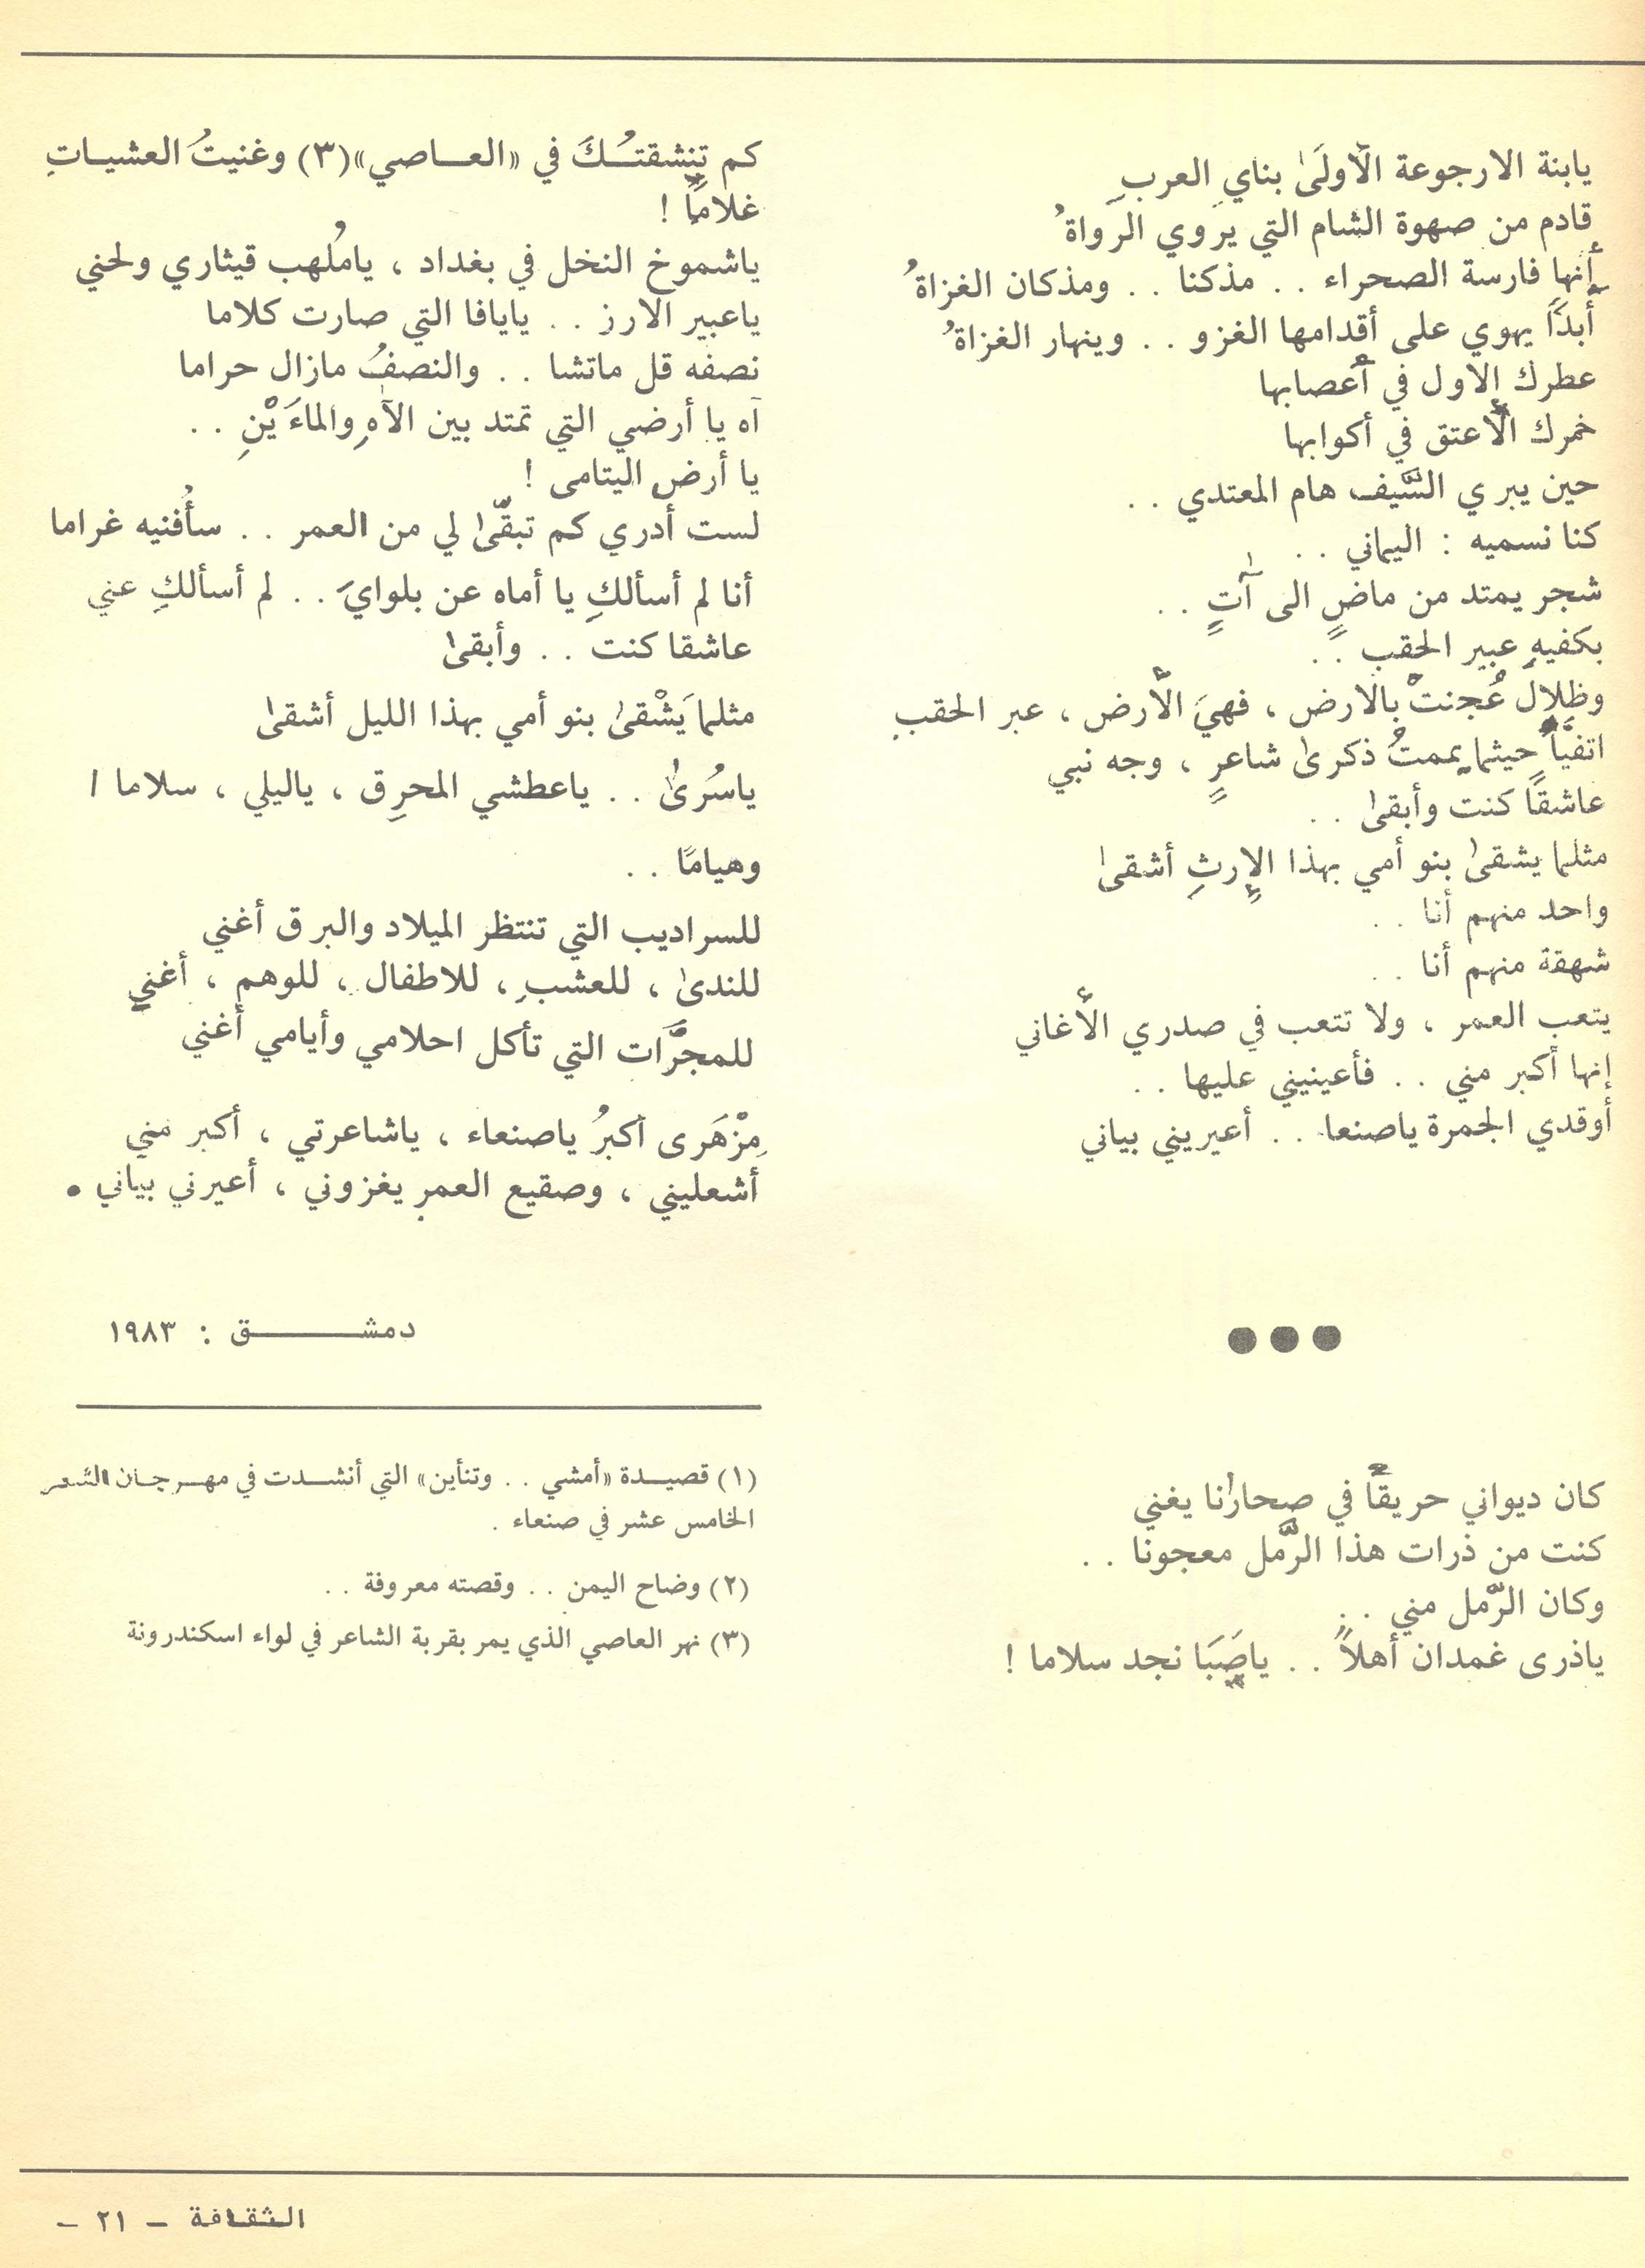 يابنة الارجوعة الأولَىٰ بناي العربِ
قادم من صهوة الشام التي يَروي الرواةُ
أنها فارسة الصحراء . . مذكنا . . ومذكان الغزاةُ
أبدًا يهوي على أقدامها الغزو . . وينهار الغزاةُ
عطرك الاول في أعصابها
خمرك الأعتق في أكوابها
حين يبري السَّيف هام المعتدي . .
كنا نسميه : اليماني . .
شجر يمتد من ماضٍ الى آتٍ . .
بكفيهِ عبير الحقبِ . .
وظلال عُجنتْ بالارض ، فهيَ الأرض ، عبر الحقبِ
اتفيَّأ حيثما يممتُ ذكرىٰ شاعرٍ ، وجه نبي
عاشقًا كنت وأبقىٰ . .
مثلما يشقىٰ بنو أمي بهذا الإرثِ أشقىٰ
واحد منهم أنا . .
شهقة منهم أنا . .
يتعب العمر ، ولا تتعب في صدري الأغاني
إنها أكبر مني . . فأعينيني عليها . .
أوقدي الجمرة ياصنعا . . أعيريني بياني
●●●
كان ديواني حريقًا في صحارانا يغني
كنت من ذرات هذا الرَّمل معجونا . .
وكان الرَّمل مني . .
ياذرى غمدان أهلاً . . ياصَبَا نجد سلاما !
كم تنشقتُكَ في «العاصي»(٣) وغنيتُ العشياتِ
غلامًا !
ياشموخ النخل في بغداد ، يامُلهب قيثاري ولحني
ياعبير الارز . . يايافا التي صارت كلاما
نصفه قل ماتشا . . والنصفُ مازال حراما
آه يا أرضي التي تمتد بين الآهِ والماءَيْنِ . .
يا أرض اليتامى !
لست أدري كم تبقّىٰ لي من العمر . . سأُفنيه غراما
أنا لم أسألكِ يا أماه عن بلوايَ . . لم أسألكِ عني
عاشقا كنت . . وأبقىٰ
مثلما يَشْقىٰ بنو أمي بهذا الليل أشقىٰ
ياسُرىٰ . . ياعطشي المحرِق ، ياليلي ، سلاما /
وهيامًا . .
للسراديب التي تنتظر الميلاد والبرق أغني
للندىٰ ، للعشبِ ، للاطفال ، للوهم ، أغني
للمجرَّات التي تأكل احلامي وأيامي أغني
مِزْهَرى أكبرُ ياصنعاء ، ياشاعرتي ، أكبر مني
أشعليني ، وصقيع العمرِ يغزوني ، أعيرني بياني •
دمشق : ١٩٨٣
(١) قصيدة «أمشي . . وتنأين» التي أنشدت في مهرجان الشعر
الخامس عشر في صنعاء .
(٢) وضاح اليمن . . وقصته معروفة . .
(٣) نهر العاصي الذي يمر بقربة الشاعر في لواء اسكندرونة
الثقافة - ٢١ -